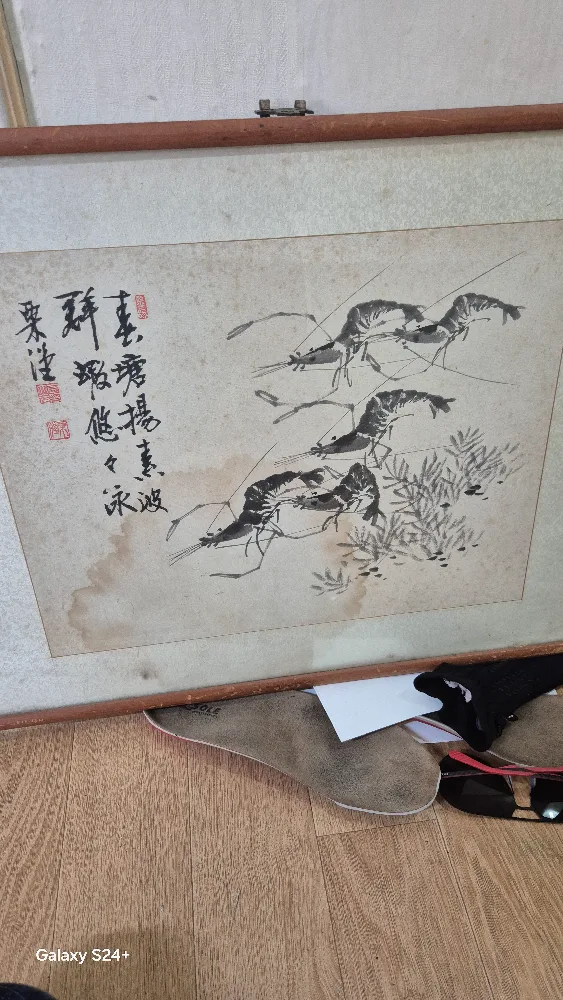 春塘揚素波
群蝦悠々泳
栗
SOLE
Galaxy S24+